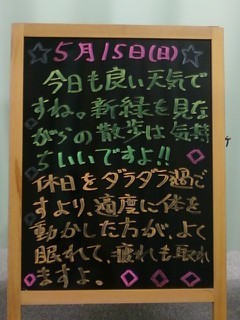 5月15日(日)
今日も良い天気で
すね。新緑を見な
がらの散歩は気持
ちいいですよ!!
休日をダラダラ過ご
すより、適度に体を
動かした方が、よく
眠れて、疲れも取れ
ますよ。